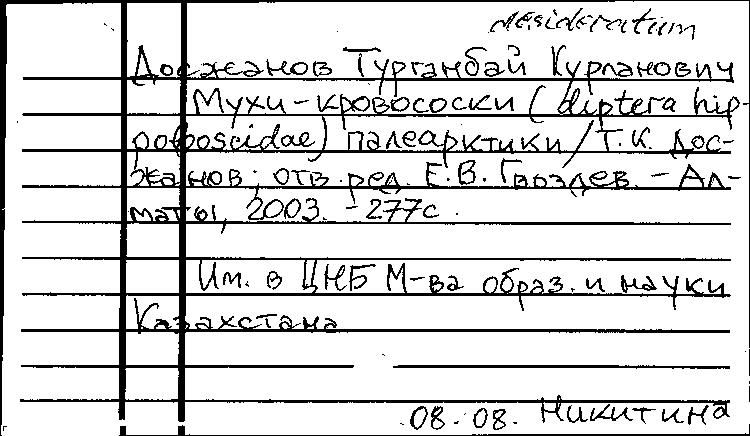 desideratum
Досжанов Турганбай Курланович
Мухи-кровососки (diptera hip-
poboscidae) палеарктики / Т.К. Дос-
жанов; отв. ред. Е.В. Гвоздев. – Ал-
маты, 2003. – 277с.
Им. в ЦНБ М-ва образ. и науки
Казахстана
08.08. Никитина